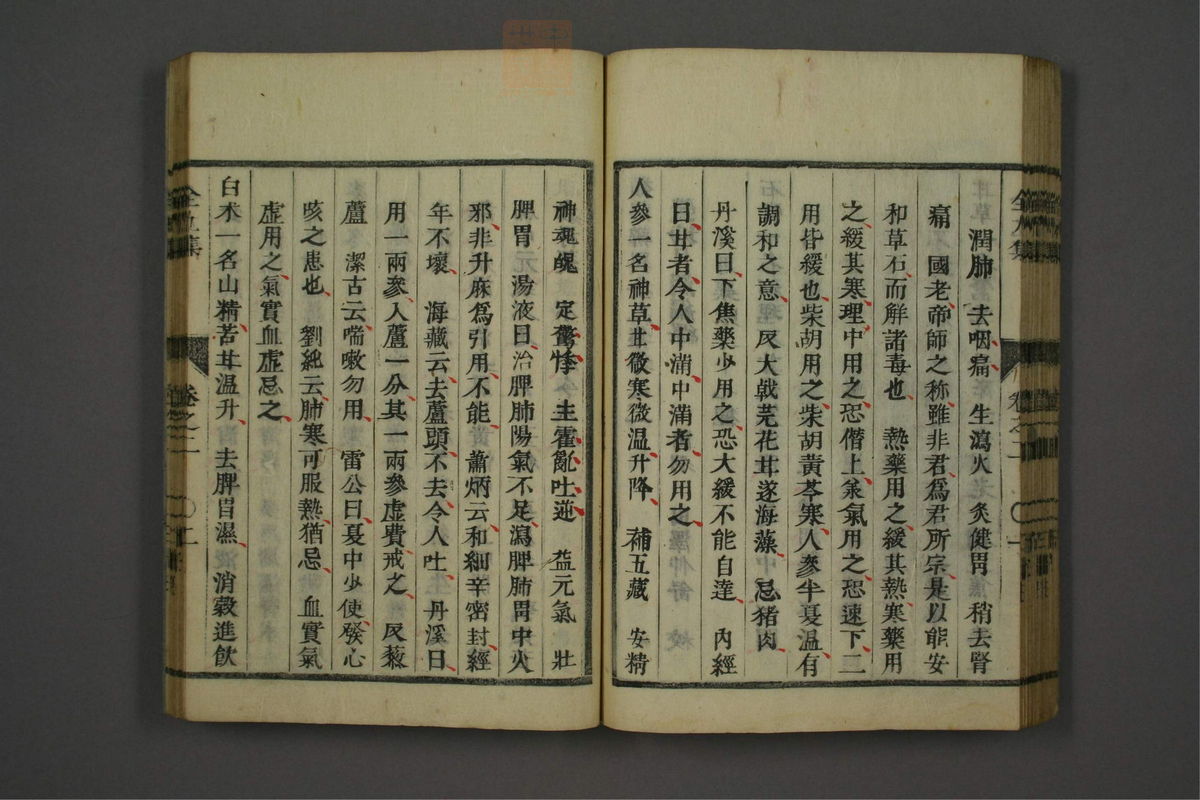 潤肺　去咽痛　生瀉火　炙健胃　稍去腎
痛　國老帝師之称雖非君爲君所宗是以能安
和草石而解諸毒也　熱藥用之緩其熱寒藥用
之緩其寒理中用之恐僭上承氣用之恐速下二
用皆緩也柴胡用之柴胡黃芩寒人參半夏温有
調和之意　反大戟芫花甘遂海藻　忌猪肉
丹溪曰下焦藥少用之恐大緩不能自達　內經
曰甘者令人中滿中滿者勿用之
人參一名神草甘微寒微温升降　補五藏　安精
神魂魄　定驚悸　主霍亂吐逆　益元氣　壯
脾胃　湯液曰治脾肺陽氣不足瀉脾肺胃中火
邪非升麻爲引用不能　蕭炳云和細辛密封經
年不壞　海藏云去蘆頭不去令人吐　丹溪曰
用一兩參入蘆一分其一兩參虛費戒之　反藜
蘆　潔古云喘嗽勿用　雷公曰夏中少使發心
痎之患也　劉純云肺寒可服熱猶忌　血實氣
虛用之氣實血虛忌之
白朮一名山精苦甘温升　去脾胃濕　消穀進飲
卷之二